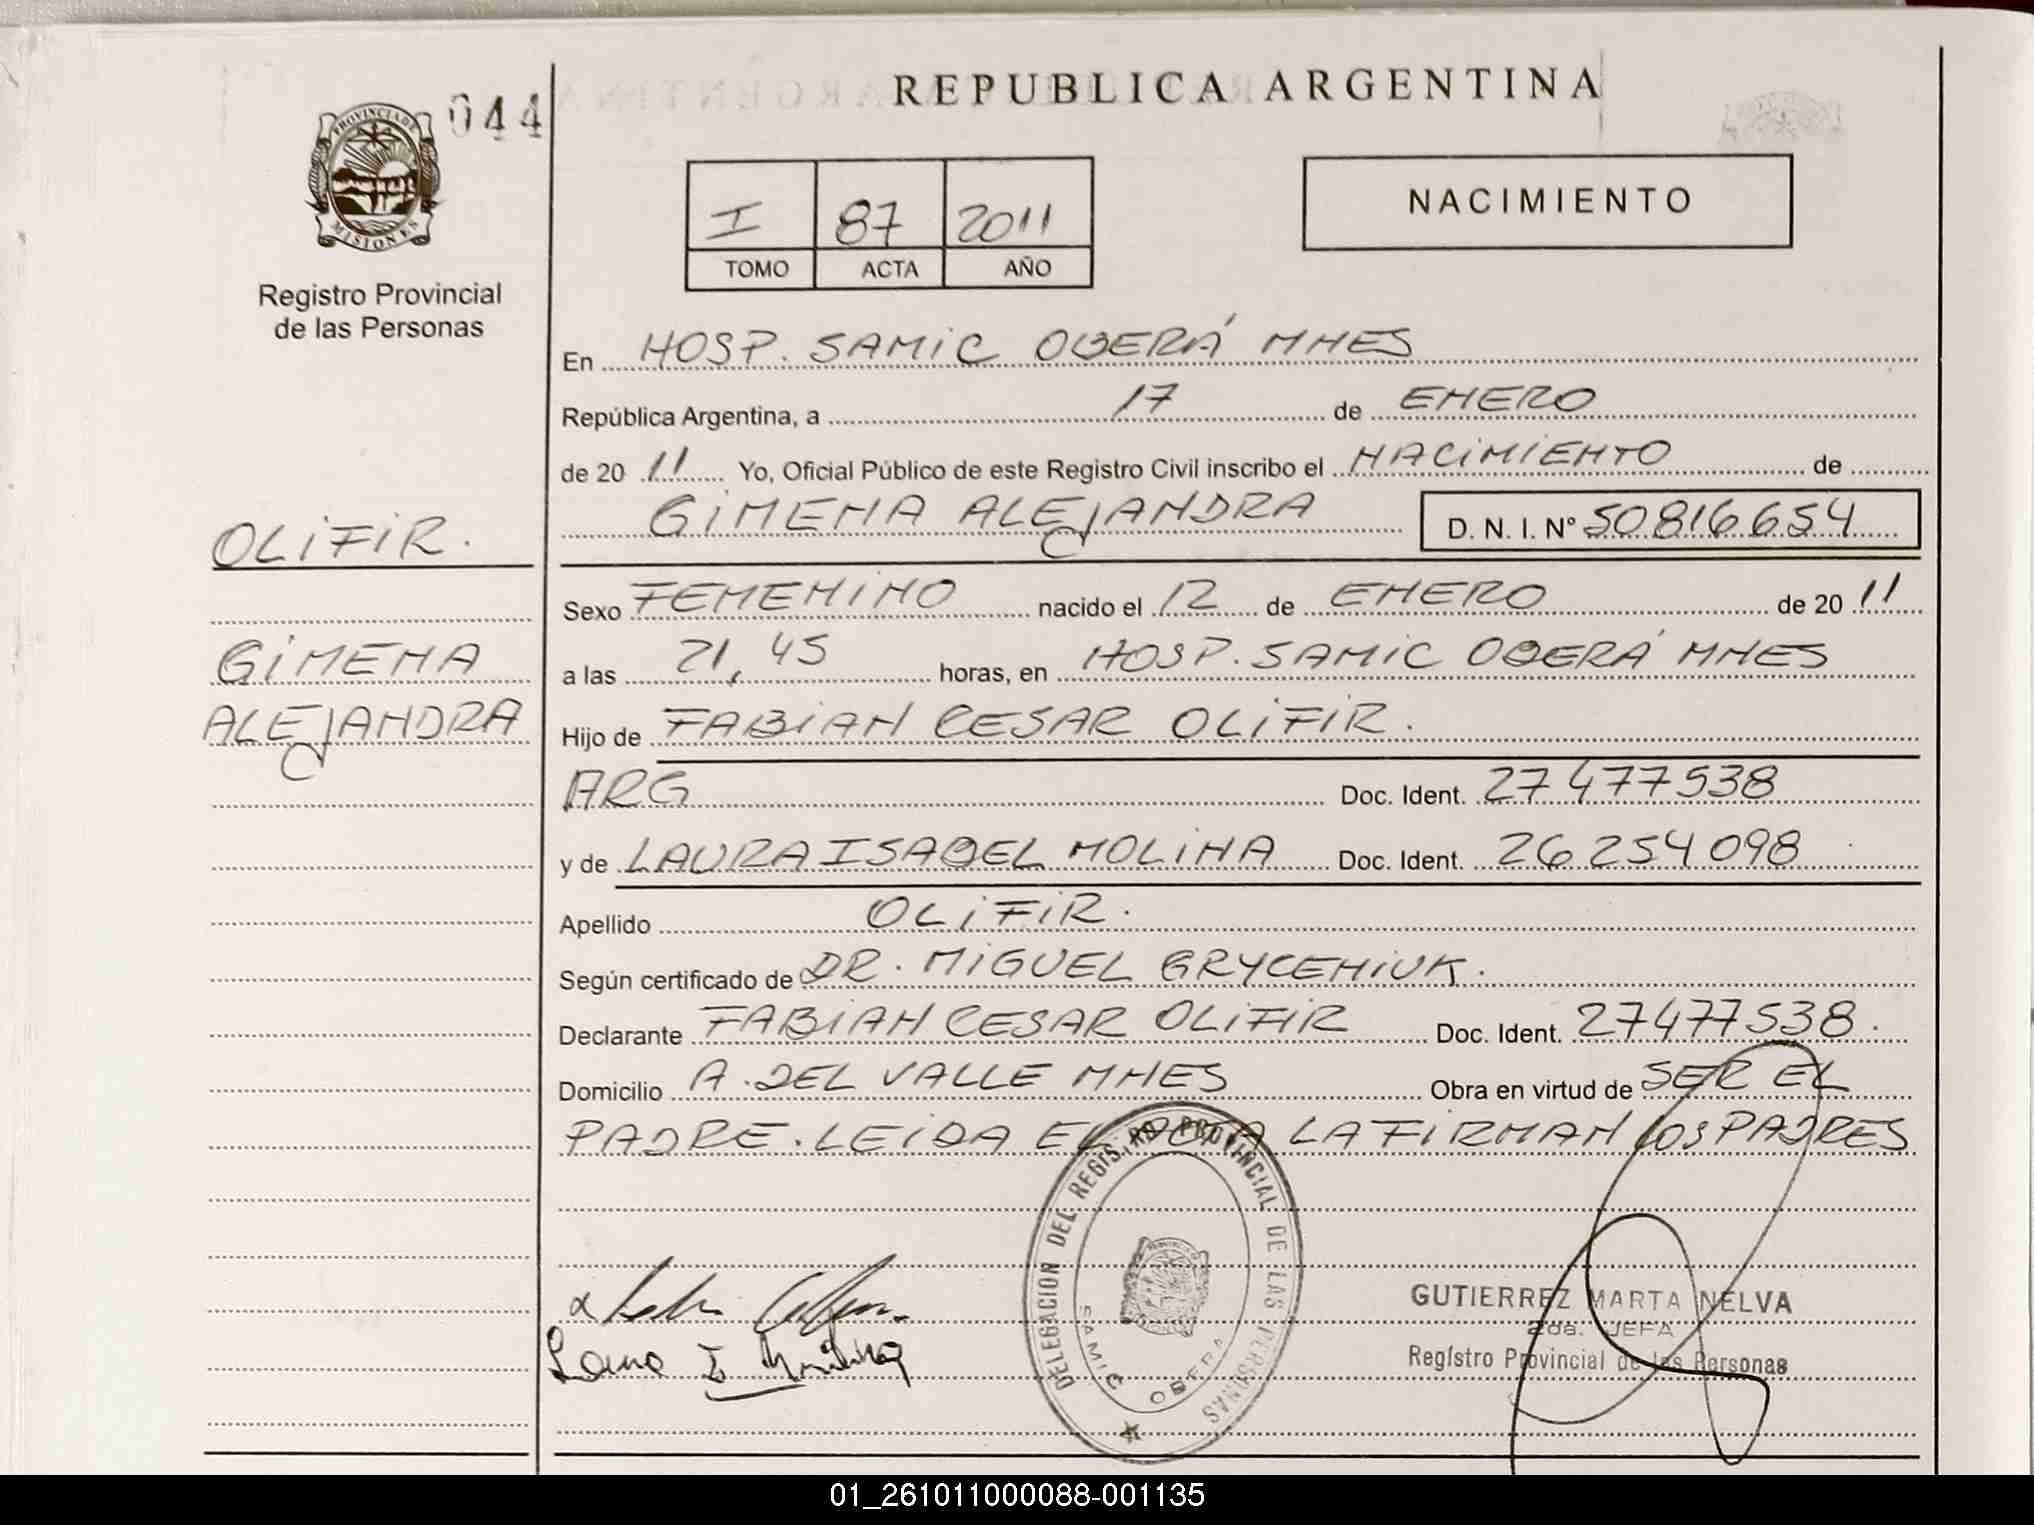 REPUBLICA ARGENTINA
044
PROVINCIA DE
MISIONES
Registro Provincial
de las Personas
I 87 2011
TOMO ACTA AÑO
NACIMIENTO
En HOSP. SAMIC OBERÁ MNES
República Argentina, a 17 de ENERO
de 20 11 Yo, Oficial Público de este Registro Civil inscribo el NACIMIENTO de
GIMENA ALEJANDRA D. N. I. N° 50816654
OLIFIR.
GIMENA
ALEJANDRA
Sexo FEMENINO nacido el 12 de ENERO de 20 11
a las 21,45 horas, en HOSP. SAMIC OBERÁ MNES
Hijo de FABIAN CESAR OLIFIR.
ARG Doc. Ident. 27477538
y de LAURA ISABEL MOLINA Doc. Ident. 26254098
Apellido OLIFIR.
Según certificado de DR. MIGUEL GRYCENIUK.
Declarante FABIAN CESAR OLIFIR Doc. Ident. 27477538.
Domicilio A. DEL VALLE MNES Obra en virtud de SER EL
PADRE. LEIDA EL ACTA LA FIRMAN LOS PADRES
DELEGACION DEL REGISTRO PROVINCIAL DE LAS PERSONAS
SAMIC OBERA
Laura I Molina
GUTIERREZ MARTA NELVA
2da. JEFA
Registro Provincial de las Personas
01_261011000088-001135